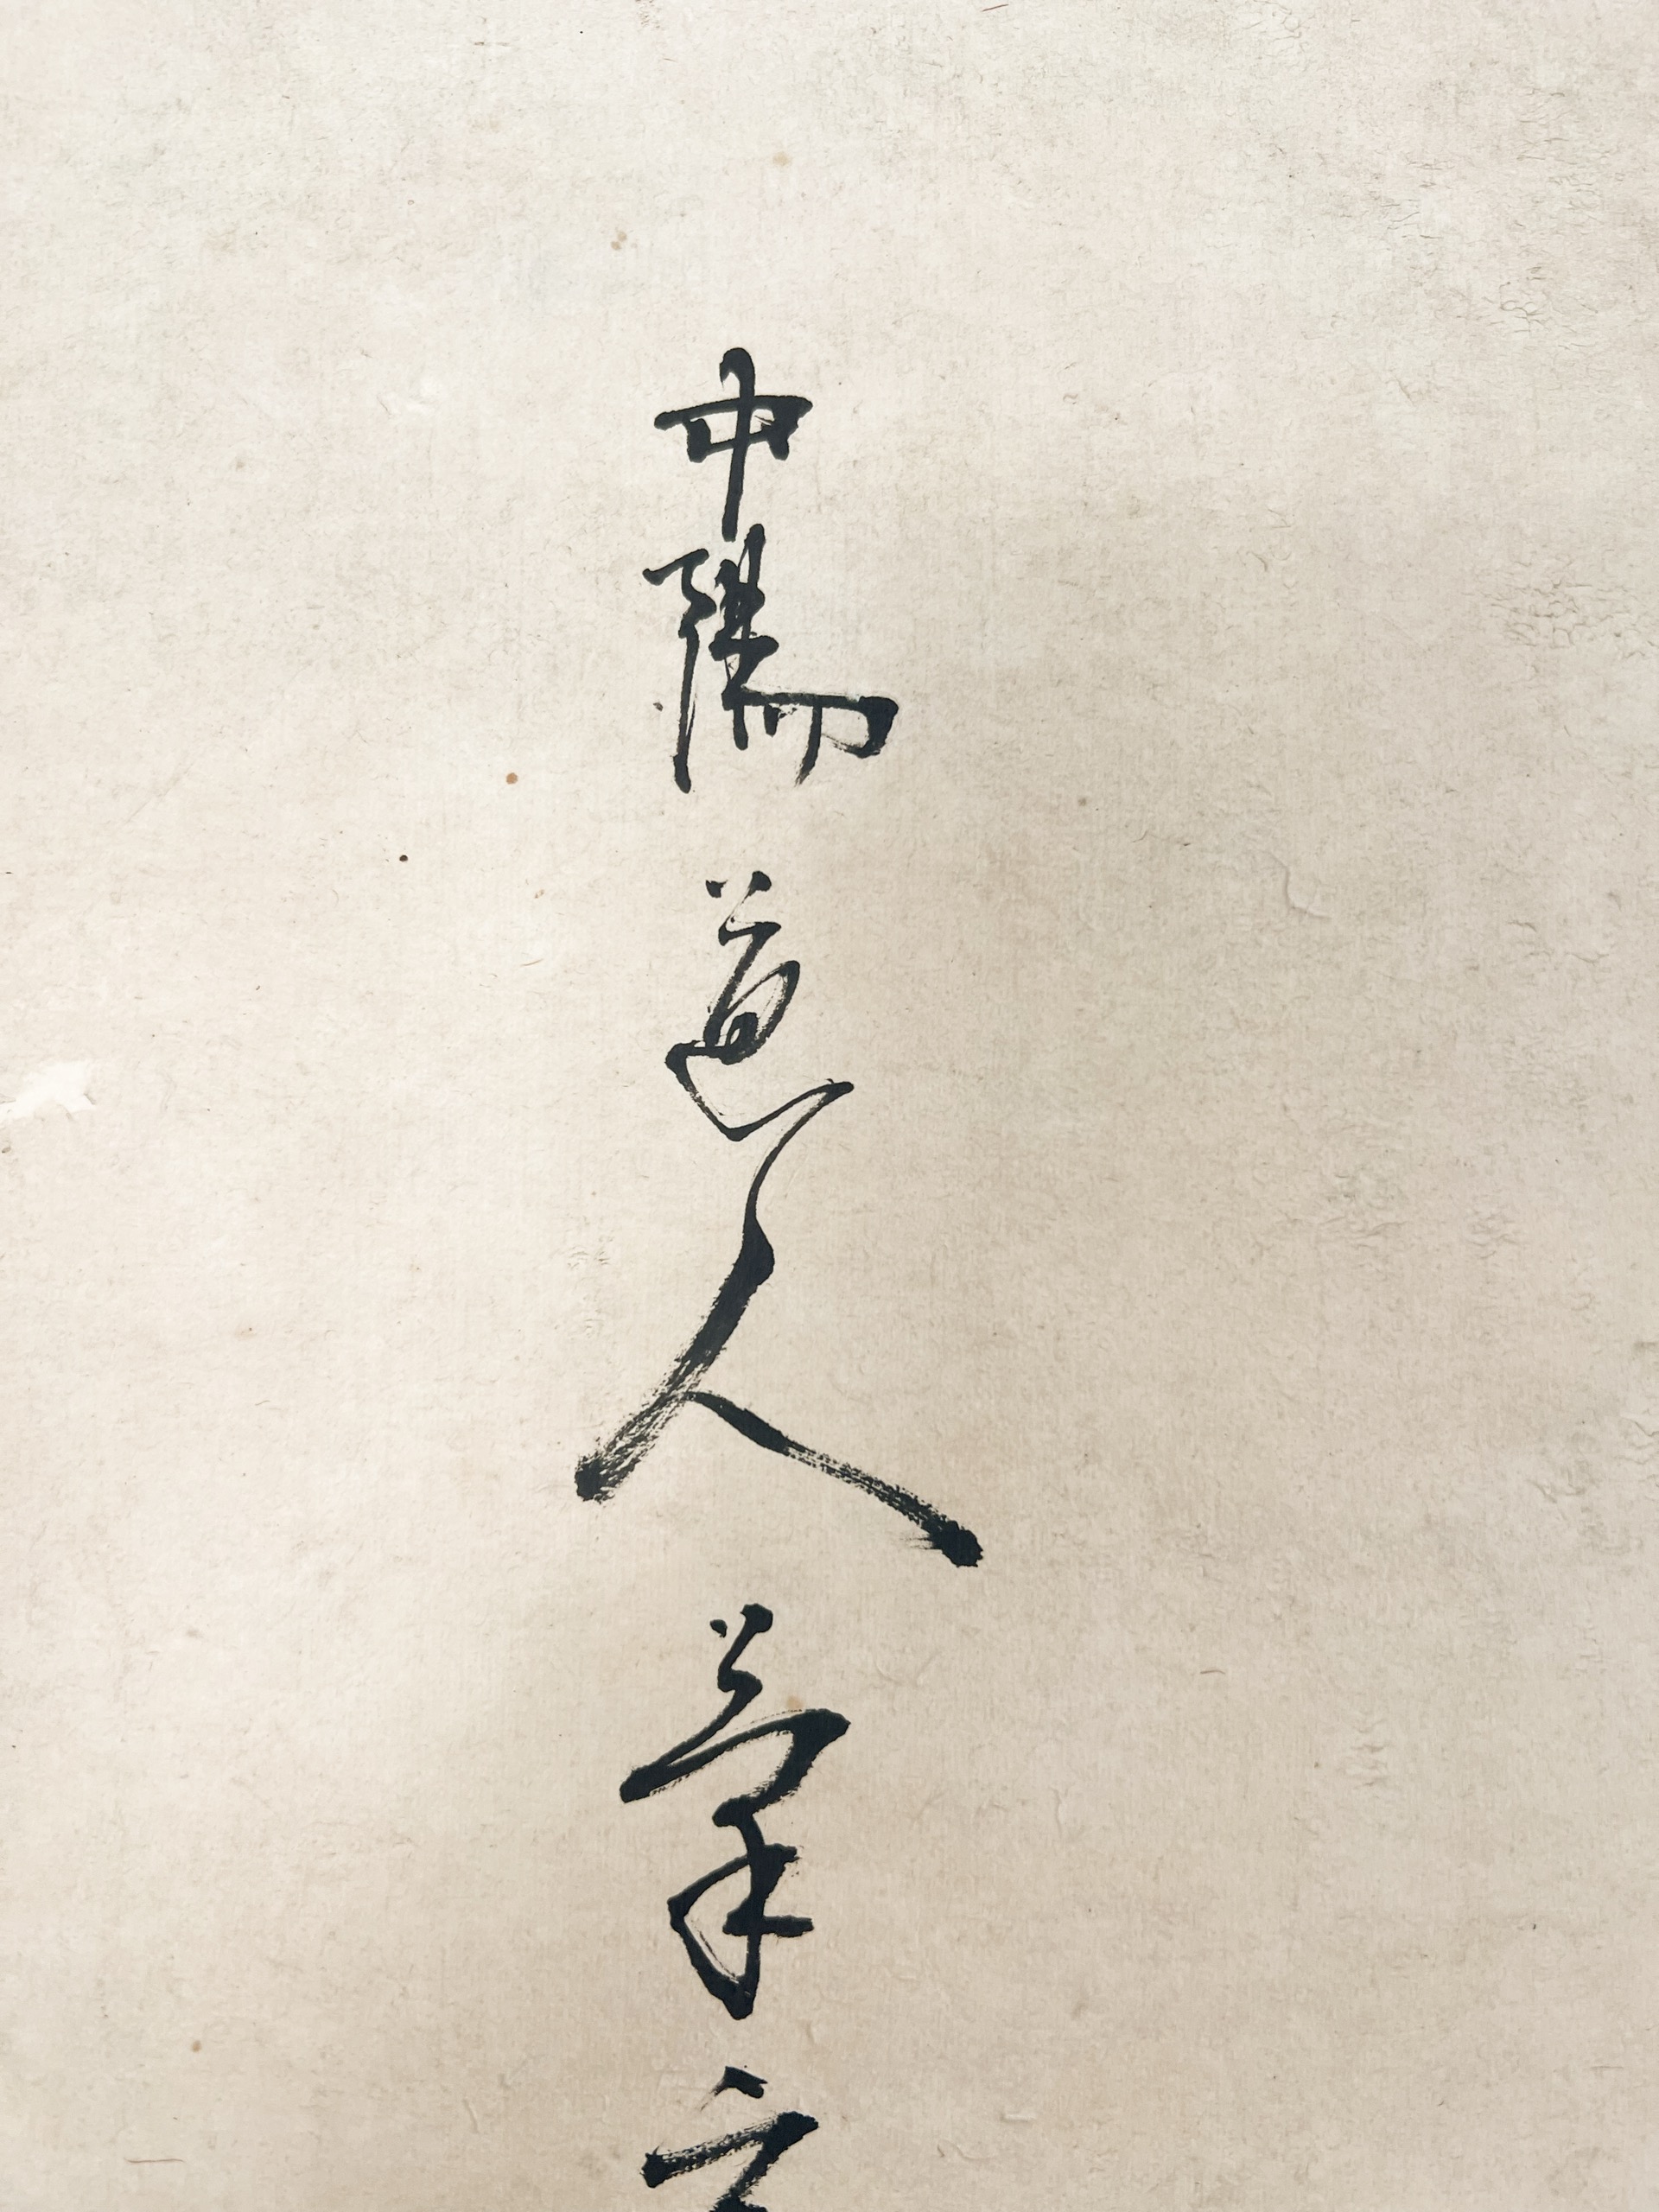 中陽道人筆